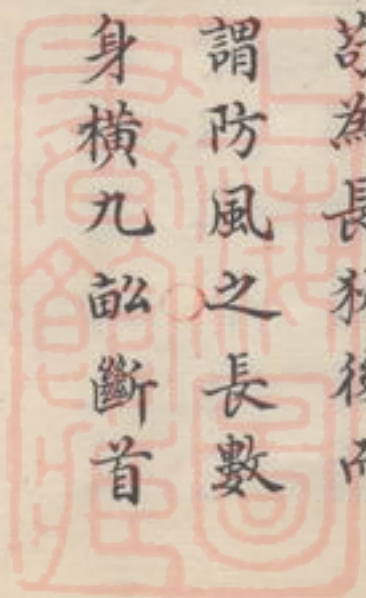 為長狄後而
謂防風之長數
身橫九畝斷首